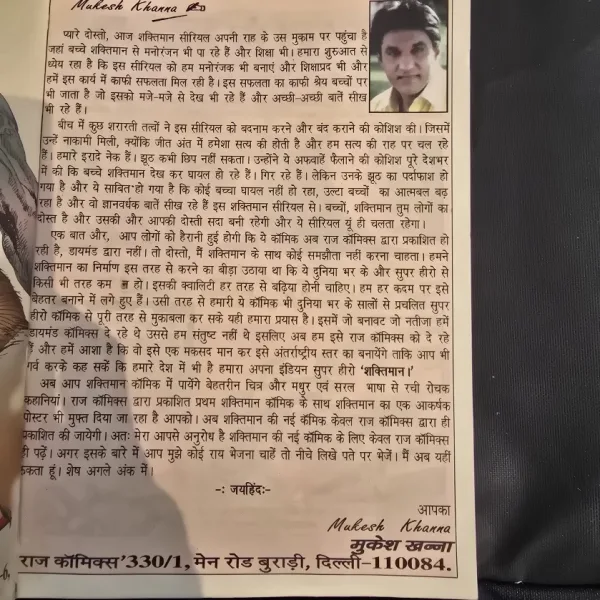 Mukesh Khanna
प्यारे दोस्तो, आज शक्तिमान सीरियल अपनी राह के उस मुकाम पर पहुंचा है
जहां बच्चे शक्तिमान से मनोरंजन भी पा रहे हैं और शिक्षा भी। हमारा शुरुआत से
ध्येय रहा है कि इस सीरियल को हम मनोरजंक भी बनाएं और शिक्षाप्रद भी और
हमें इस कार्य में काफी सफलता मिल रही है। इस सफलता का काफी श्रेय बच्चों पर
भी जाता है जो इसको मजे-मजे से देख भी रहे हैं और अच्छी-अच्छी बातें सीख
भी रहे हैं।
बीच में कुछ शरारती तत्वों ने इस सीरियल को बदनाम करने और बंद कराने की कोशिश की। जिसमें
उन्हें नाकामी मिली, क्योंकि जीत अंत में हमेशा सत्य की होती है और हम सत्य की राह पर चल रहे
हैं। हमारे इरादे नेक हैं। झूठ कभी छिप नहीं सकता। उन्होंने ये अफवाहें फैलाने की कोशिश पूरे देशभर
में की कि बच्चे शक्तिमान देख कर घायल हो रहे हैं। गिर रहे हैं। लेकिन उनके झूठ का पर्दाफाश हो
गया है और ये साबित हो गया है कि कोई बच्चा घायल नहीं हो रहा, उल्टा बच्चों का आत्मबल बढ़
रहा है और वो ज्ञानवर्धक बातें सीख रहे हैं इस शक्तिमान सीरियल से। बच्चों, शक्तिमान तुम लोगों का
दोस्त है और उसकी और आपकी दोस्ती सदा बनी रहेगी और ये सीरियल यूं ही चलता रहेगा।
एक बात और, आप लोगों को हैरानी हुई होगी कि ये कॉमिक अब राज कॉमिक्स द्वारा प्रकाशित हो
रही है, डायमंड द्वारा नहीं। तो दोस्तो, मैं शक्तिमान के साथ कोई समझौता नहीं करना चाहता। हमने
शक्तिमान का निर्माण इस तरह से करने का बीड़ा उठाया था कि ये दुनिया भर के और सुपर हीरो से
किसी भी तरह कम न हो। इसकी क्वालिटी हर तरह से बढ़िया होनी चाहिए। हम हर कदम पर इसे
बेहतर बनाने में लगे हुए हैं। उसी तरह से हमारी ये कॉमिक भी दुनिया भर के सालों से प्रचलित सुपर
हीरो कॉमिक से पूरी तरह से मुकाबला कर सके यही हमारा प्रयास है। इसमें जो बनावट जो नतीजा हमें
डायमंड कॉमिक्स दे रहे थे उससे हम संतुष्ट नहीं थे इसलिए अब हम इसे राज कॉमिक्स को दे रहे
हैं और हमें आशा है कि वो इसे एक मकसद मान कर इसे अंतर्राष्ट्रीय स्तर का बनायेंगे ताकि आप भी
गर्व करके कह सकें कि हमारे देश में भी है हमारा अपना इंडियन सुपर हीरो 'शक्तिमान।'
अब आप शक्तिमान कॉमिक में पायेंगे बेहतरीन चित्र और मधुर एवं सरल भाषा से रची रोचक
कहानियां। राज कॉमिक्स द्वारा प्रकाशित प्रथम शक्तिमान कॉमिक के साथ शक्तिमान का एक आकर्षक
पोस्टर भी मुफ्त दिया जा रहा है आपको। अब शक्तिमान की नई कॉमिक केवल राज कॉमिक्स द्वारा ही
प्रकाशित की जायेगी। अतः मेरा आपसे अनुरोध है शक्तिमान की नई कॉमिक के लिए केवल राज कॉमिक्स
ही पढ़ें। अगर इसके बारे में आप मुझे कोई राय भेजना चाहें तो नीचे लिखे पते पर भेजें। मैं अब यहीं
रुकता हूं। शेष अगले अंक में।
-: जयहिंद:-
आपका
Mukesh Khanna
मुकेश खन्ना
राज कॉमिक्स'330/1, मेन रोड बुराड़ी, दिल्ली-110084.